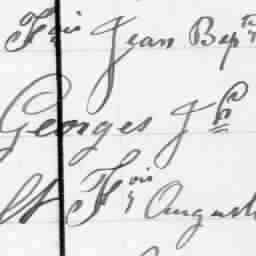 Fois Jean Bapte
Georges Jh
lt Fois Augus